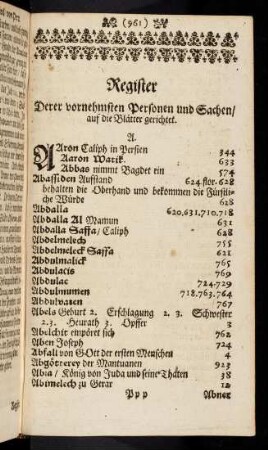 (961)
Register
Derer vornehmsten Personen und Sachen/
auf die Blätter gerichtet.
A.
AAron Caliph in Persien 344
Aaron Warik. 633
Abbas nimmt Bagdet ein 574
Abassiden Auffstand 624. flor. 628
behalten die Oberhand und bekommen die Fürstli-
che Würde 628
Abdalla 620,631,710,718
Abdalla Al Mamun 631
Abdalla Saffa/ Caliph 628
Abdelmelech 755
Abdelmeleck Saffa 621
Abdulmalick 765
Abdulacis 769
Abdulac 724,729
Abdulmumen 718.763,764
Abdulwaten 767
Abels Geburt 2. Erschlagung 2. 3. Schwester
2.3. Heurath 3. Opffer 3
Abelchir empöret sich 762
Aben Joseph 724
Abfall von GOtt der ersten Menschen 4
Abgötterey der Mantuanen 923
Abia/ König von Juda und seine Thaten 38
Abimelech zu Gerar 12
Ppp Abner